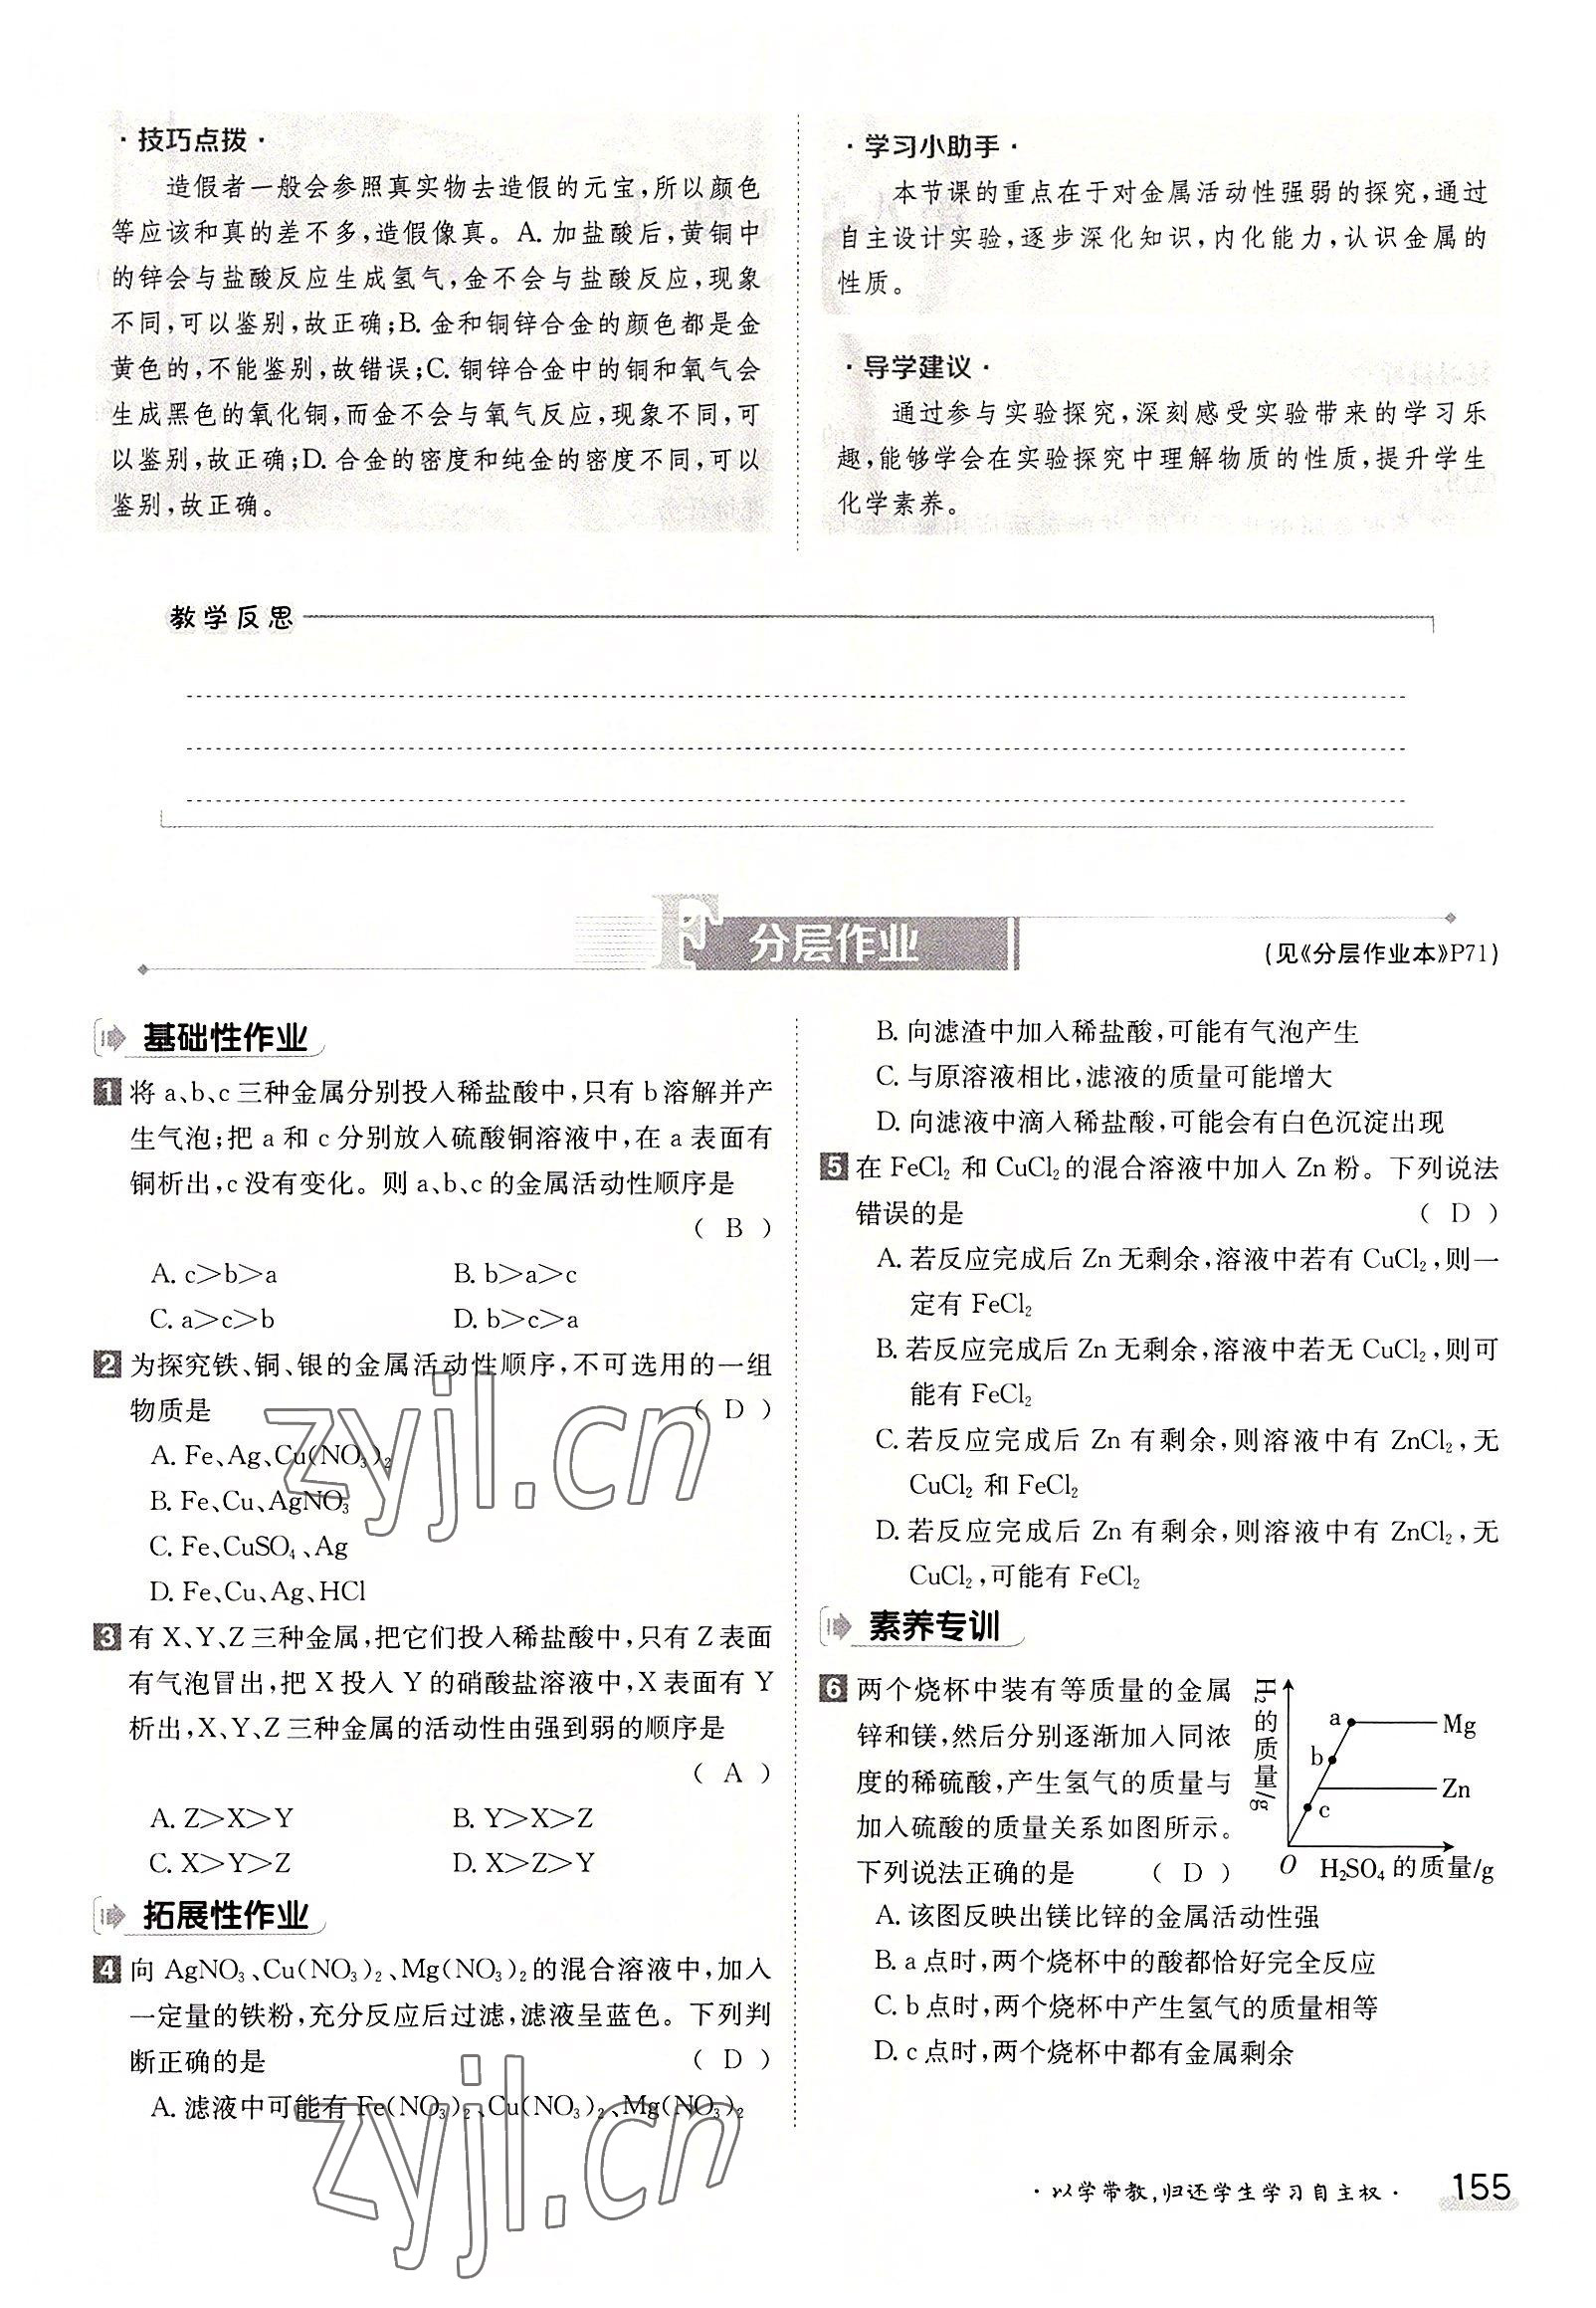 ·技巧点拨·
造假者一般会参照真实物去造假的元宝,所以颜色
等应该和真的差不多,造假像真。A. 加盐酸后,黄铜中
的锌会与盐酸反应生成氢气,金不会与盐酸反应,现象
不同,可以鉴别,故正确;B. 金和铜锌合金的颜色都是金
黄色的,不能鉴别,故错误;C. 铜锌合金中的铜和氧气会
生成黑色的氧化铜,而金不会与氧气反应,现象不同,可
以鉴别,故正确;D. 合金的密度和纯金的密度不同,可以
鉴别,故正确。
·学习小助手·
本节课的重点在于对金属活动性强弱的探究,通过
自主设计实验,逐步深化知识,内化能力,认识金属的
性质。
·导学建议·
通过参与实验探究,深刻感受实验带来的学习乐
趣,能够学会在实验探究中理解物质的性质,提升学生
化学素养。
教学反思
F 分层作业
(见《分层作业本》P71)
基础性作业
1 将 a、b、c 三种金属分别投入稀盐酸中,只有 b 溶解并产
生气泡;把 a 和 c 分别放入硫酸铜溶液中,在 a 表面有
铜析出,c 没有变化。则 a、b、c 的金属活动性顺序是
( B )
A. c>b>a B. b>a>c
C. a>c>b D. b>c>a
2 为探究铁、铜、银的金属活动性顺序,不可选用的一组
物质是 ( D )
A. Fe、Ag、Cu(NO₃)₂
B. Fe、Cu、AgNO₃
C. Fe、CuSO₄、Ag
D. Fe、Cu、Ag、HCl
3 有 X、Y、Z 三种金属,把它们投入稀盐酸中,只有 Z 表面
有气泡冒出,把 X 投入 Y 的硝酸盐溶液中,X 表面有 Y
析出,X、Y、Z 三种金属的活动性由强到弱的顺序是
( A )
A. Z>X>Y B. Y>X>Z
C. X>Y>Z D. X>Z>Y
拓展性作业
4 向 AgNO₃、Cu(NO₃)₂、Mg(NO₃)₂ 的混合溶液中,加入
一定量的铁粉,充分反应后过滤,滤液呈蓝色。下列判
断正确的是 ( D )
A. 滤液中可能有 Fe(NO₃)₂、Cu(NO₃)₂、Mg(NO₃)₂
B. 向滤渣中加入稀盐酸,可能有气泡产生
C. 与原溶液相比,滤液的质量可能增大
D. 向滤液中滴入稀盐酸,可能会有白色沉淀出现
5 在 FeCl₂ 和 CuCl₂ 的混合溶液中加入 Zn 粉。下列说法
错误的是 ( D )
A. 若反应完成后 Zn 无剩余,溶液中若有 CuCl₂,则一
定有 FeCl₂
B. 若反应完成后 Zn 无剩余,溶液中若无 CuCl₂,则可
能有 FeCl₂
C. 若反应完成后 Zn 有剩余,则溶液中有 ZnCl₂,无
CuCl₂ 和 FeCl₂
D. 若反应完成后 Zn 有剩余,则溶液中有 ZnCl₂,无
CuCl₂,可能有 FeCl₂
素养专训
6 两个烧杯中装有等质量的金属
锌和镁,然后分别逐渐加入同浓
度的稀硫酸,产生氢气的质量与
加入硫酸的质量关系如图所示。
下列说法正确的是 ( D )
H₂的质量/g
a
Mg
b
Zn
c
O
H₂SO₄的质量/g
A. 该图反映出镁比锌的金属活动性强
B. a 点时,两个烧杯中的酸都恰好完全反应
C. b 点时,两个烧杯中产生氢气的质量相等
D. c 点时,两个烧杯中都有金属剩余
zyjl.cn
zyjl.cn
·以学带教,归还学生学习自主权·
155